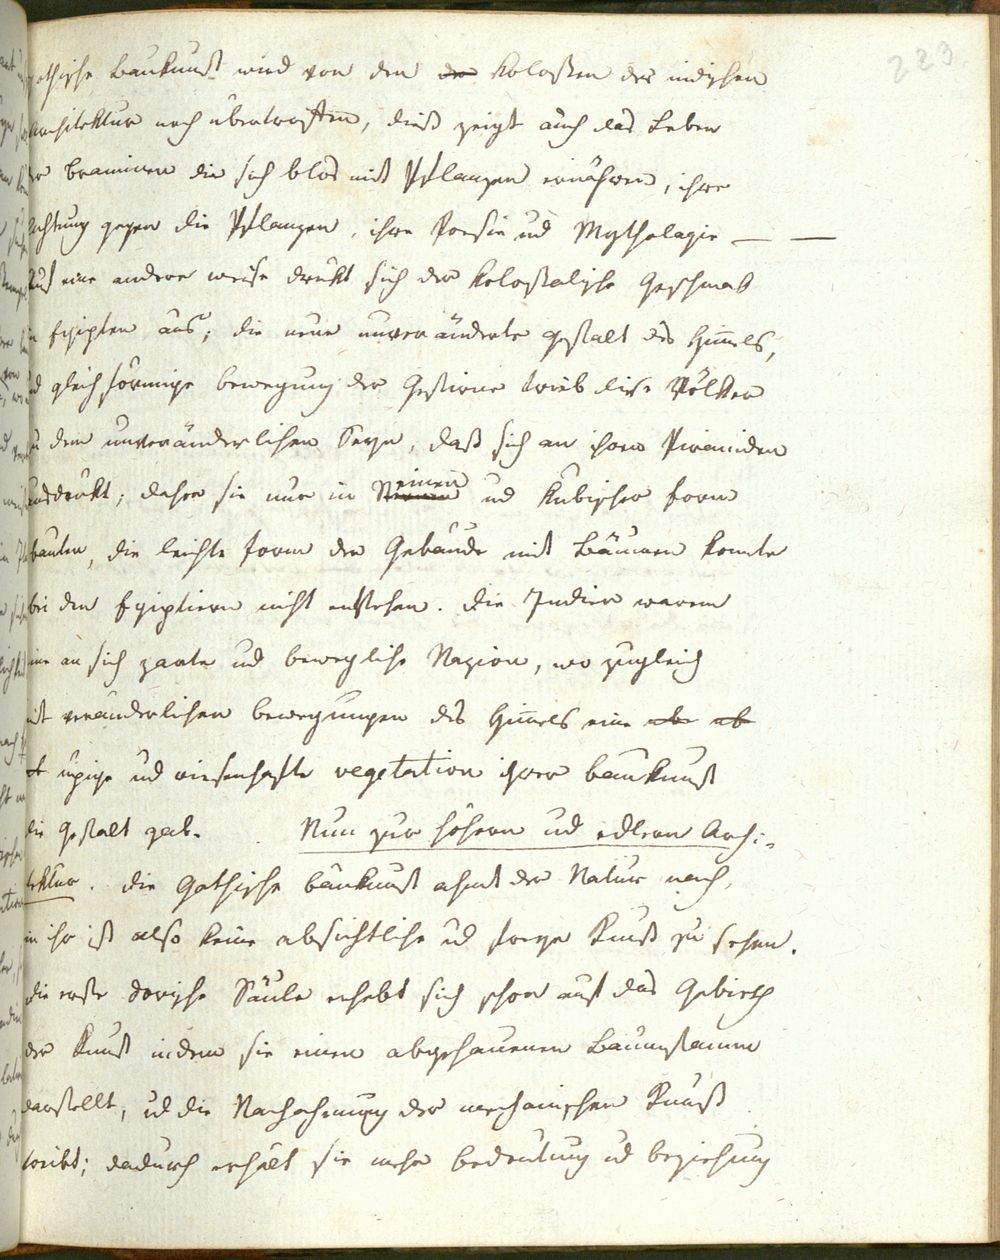 223.
gothische Baukunst wird von den der Koloßen der indischen
Architektur noch übertroffen, dieß zeigt auch das Leben
der Braminen die sich blos mit Pflanzen ernähren, ihre
Achtung gegen die Pflanzen, ihre Poesie und Mythologie — —
Auf eine andere weise drükt sich der koloßalische Geschmak
in Egipten aus, die neue unveränderte gestalt des Him̄els,
und gleichförmige bewegung der Gestirne trieb diese Völker
zu dem unveränderlichen Seyn, daß sich an ihren Piramiden
ausdrükt; daher sie nur in einen und Kubischer form
bauten, die leichte form der Gebäude mit Bäumen konnte
bei den Egiptiern nicht entstehen. die Indier waren
eine an sich zarte und bewegliche Nazion, wo zugleich
mit veränderlichen bewegungen des Him̄els eine
üpige und riesenhafte vegetation ihrer baukunst
die Gestalt gab. Nun zur höhern und edlern Archi-
tektur. die Gothische baukunst ahmt der Natur nach,
in ihr ist also keine absichtliche ud freye Kunst zu sehen.
die erste dorische Säule erhebt sich schon auf das Gebieth
der Kunst indem sie einen abgehauenen Baumstamm
darstellt, ud die Nachahmung der mechanischen Kunst
treibt; dadurch erhält sie mehr bedeutung ud beziehung